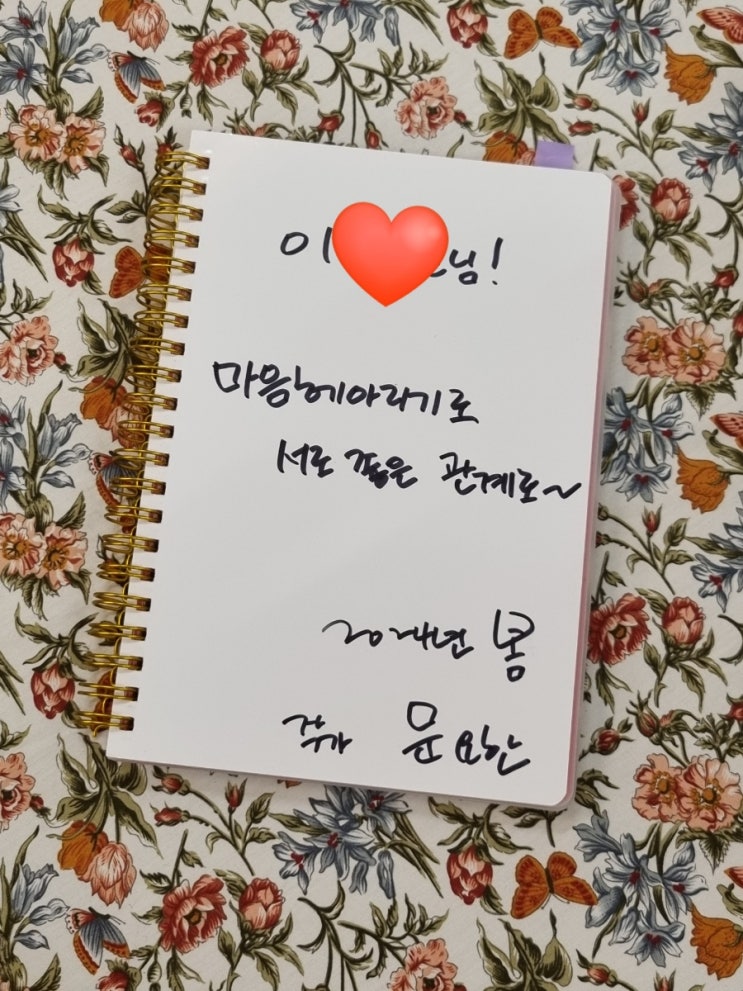 이 님!
마음헤아리기로
서로 깊은 관계로~
2024년 봄
작가 문요한